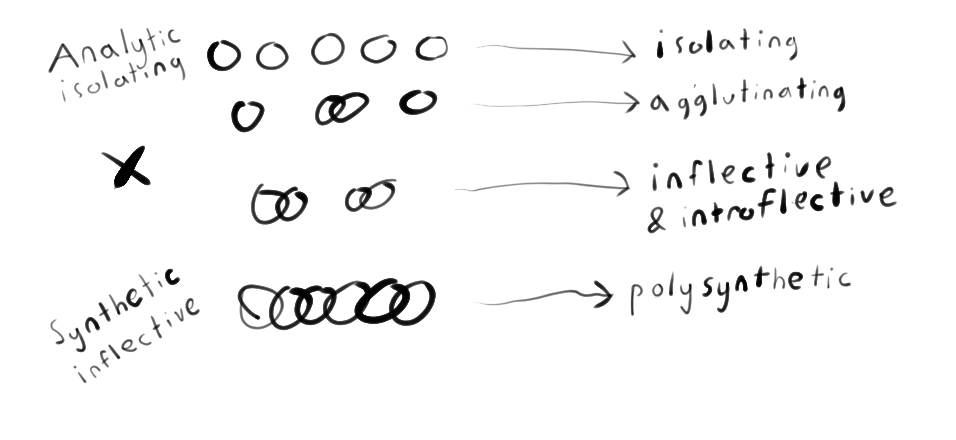 Analytic
isolating
isolating
agglutinating
X
inflective
& introflective
Synthetic
inflective
polysynthetic